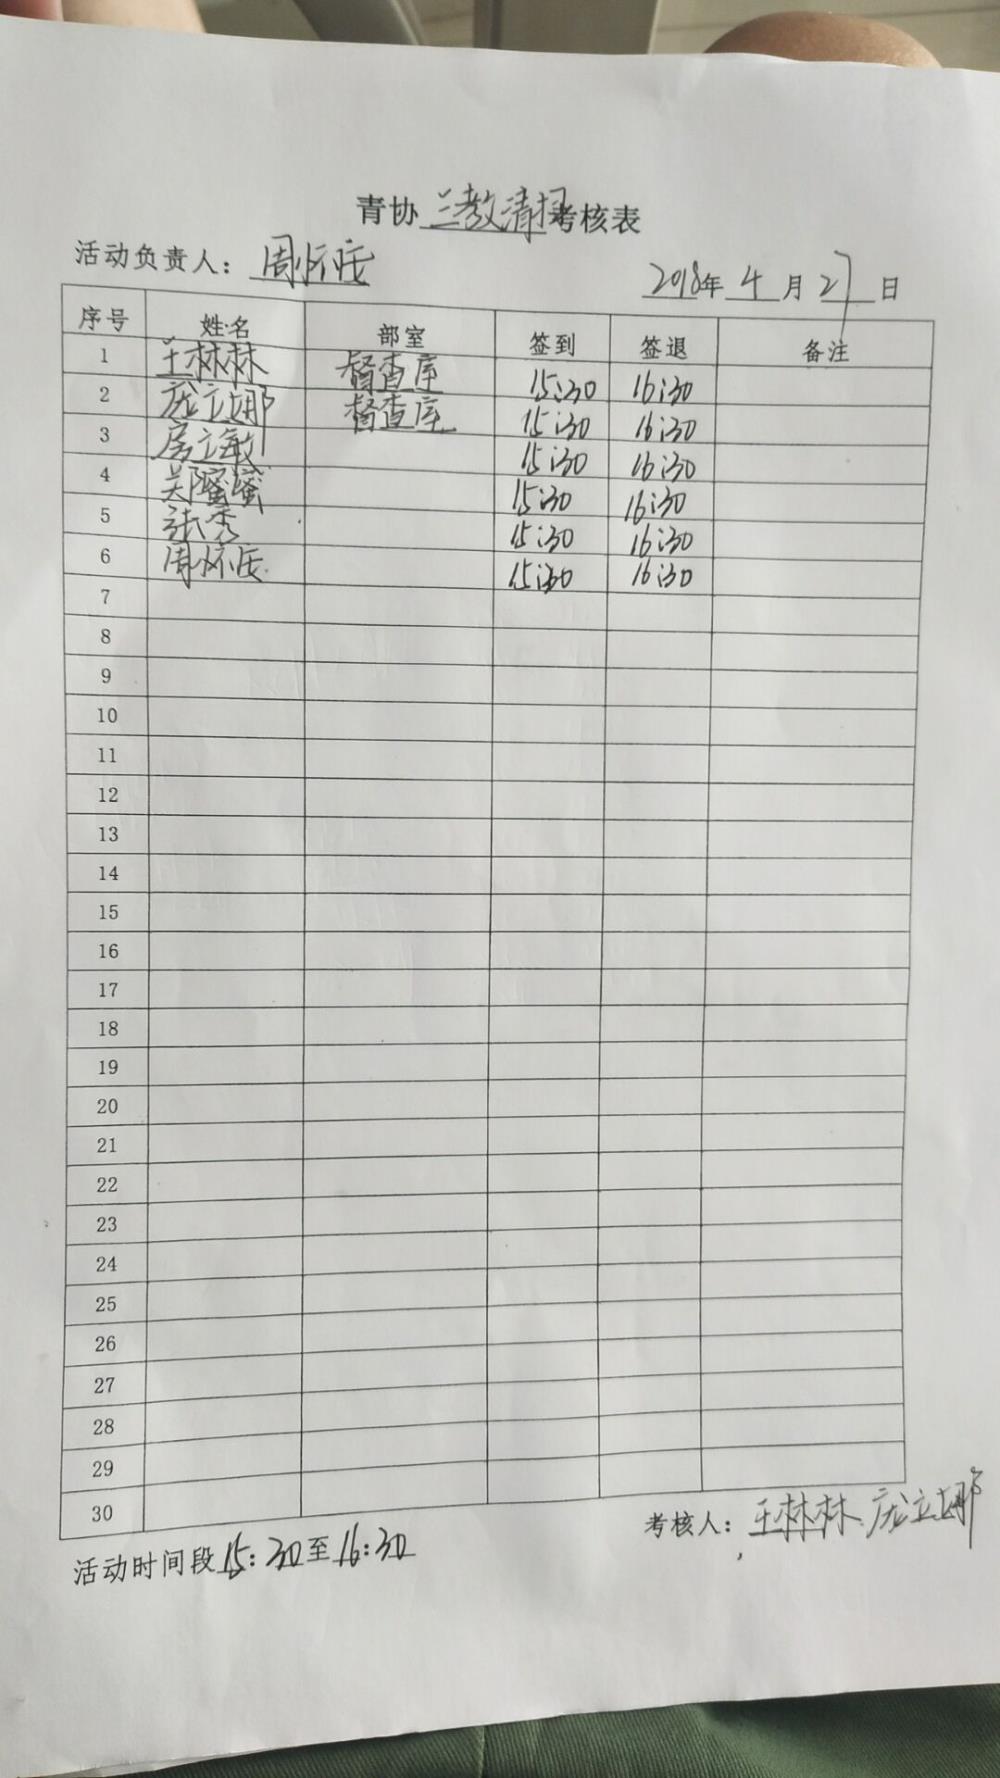 青协 兰教清扫考核表
活动负责人：周怀庆
2018年 4 月 27 日
序号 姓名 部室 签到 签退 备注
1 王林林 督查库 15:30 16:30
2 庞立娜 督查库 15:30 16:30
3 房立敏 15:30 16:30
4 郑蜜蜜 15:30 16:30
5 张秀 15:30 16:30
6 周怀庆 15:30 16:30
7
8
9
10
11
12
13
14
15
16
17
18
19
20
21
22
23
24
25
26
27
28
29
30
考核人：王林林 庞立娜
活动时间段 15:30至16:30